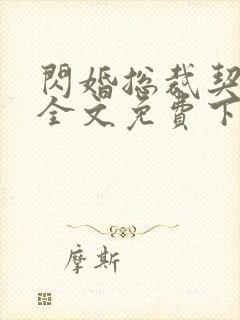 閃婚总裁契
全文免費下
摩斯